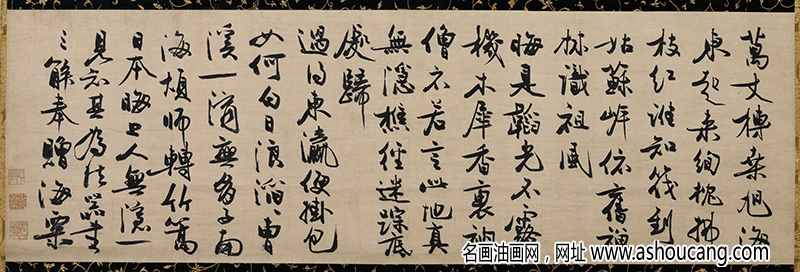 萬丈榑桑旭海
東起來絢拂
枝紅誰知筏到
姑蘇岸依舊禪
林識祖風
晦是韜光不露
機木犀香裏衲
僧衣若言此地真
無隱樵徑迷蹤底
處歸
過得東瀛便掛包
如何白日浪滔滔曹
溪一滴無多子南
海煩師轉竹篙
日本晦上人無隱一
見知其為法器書
奉贈海粟
名画油画网，网址 www.ashoucang.com